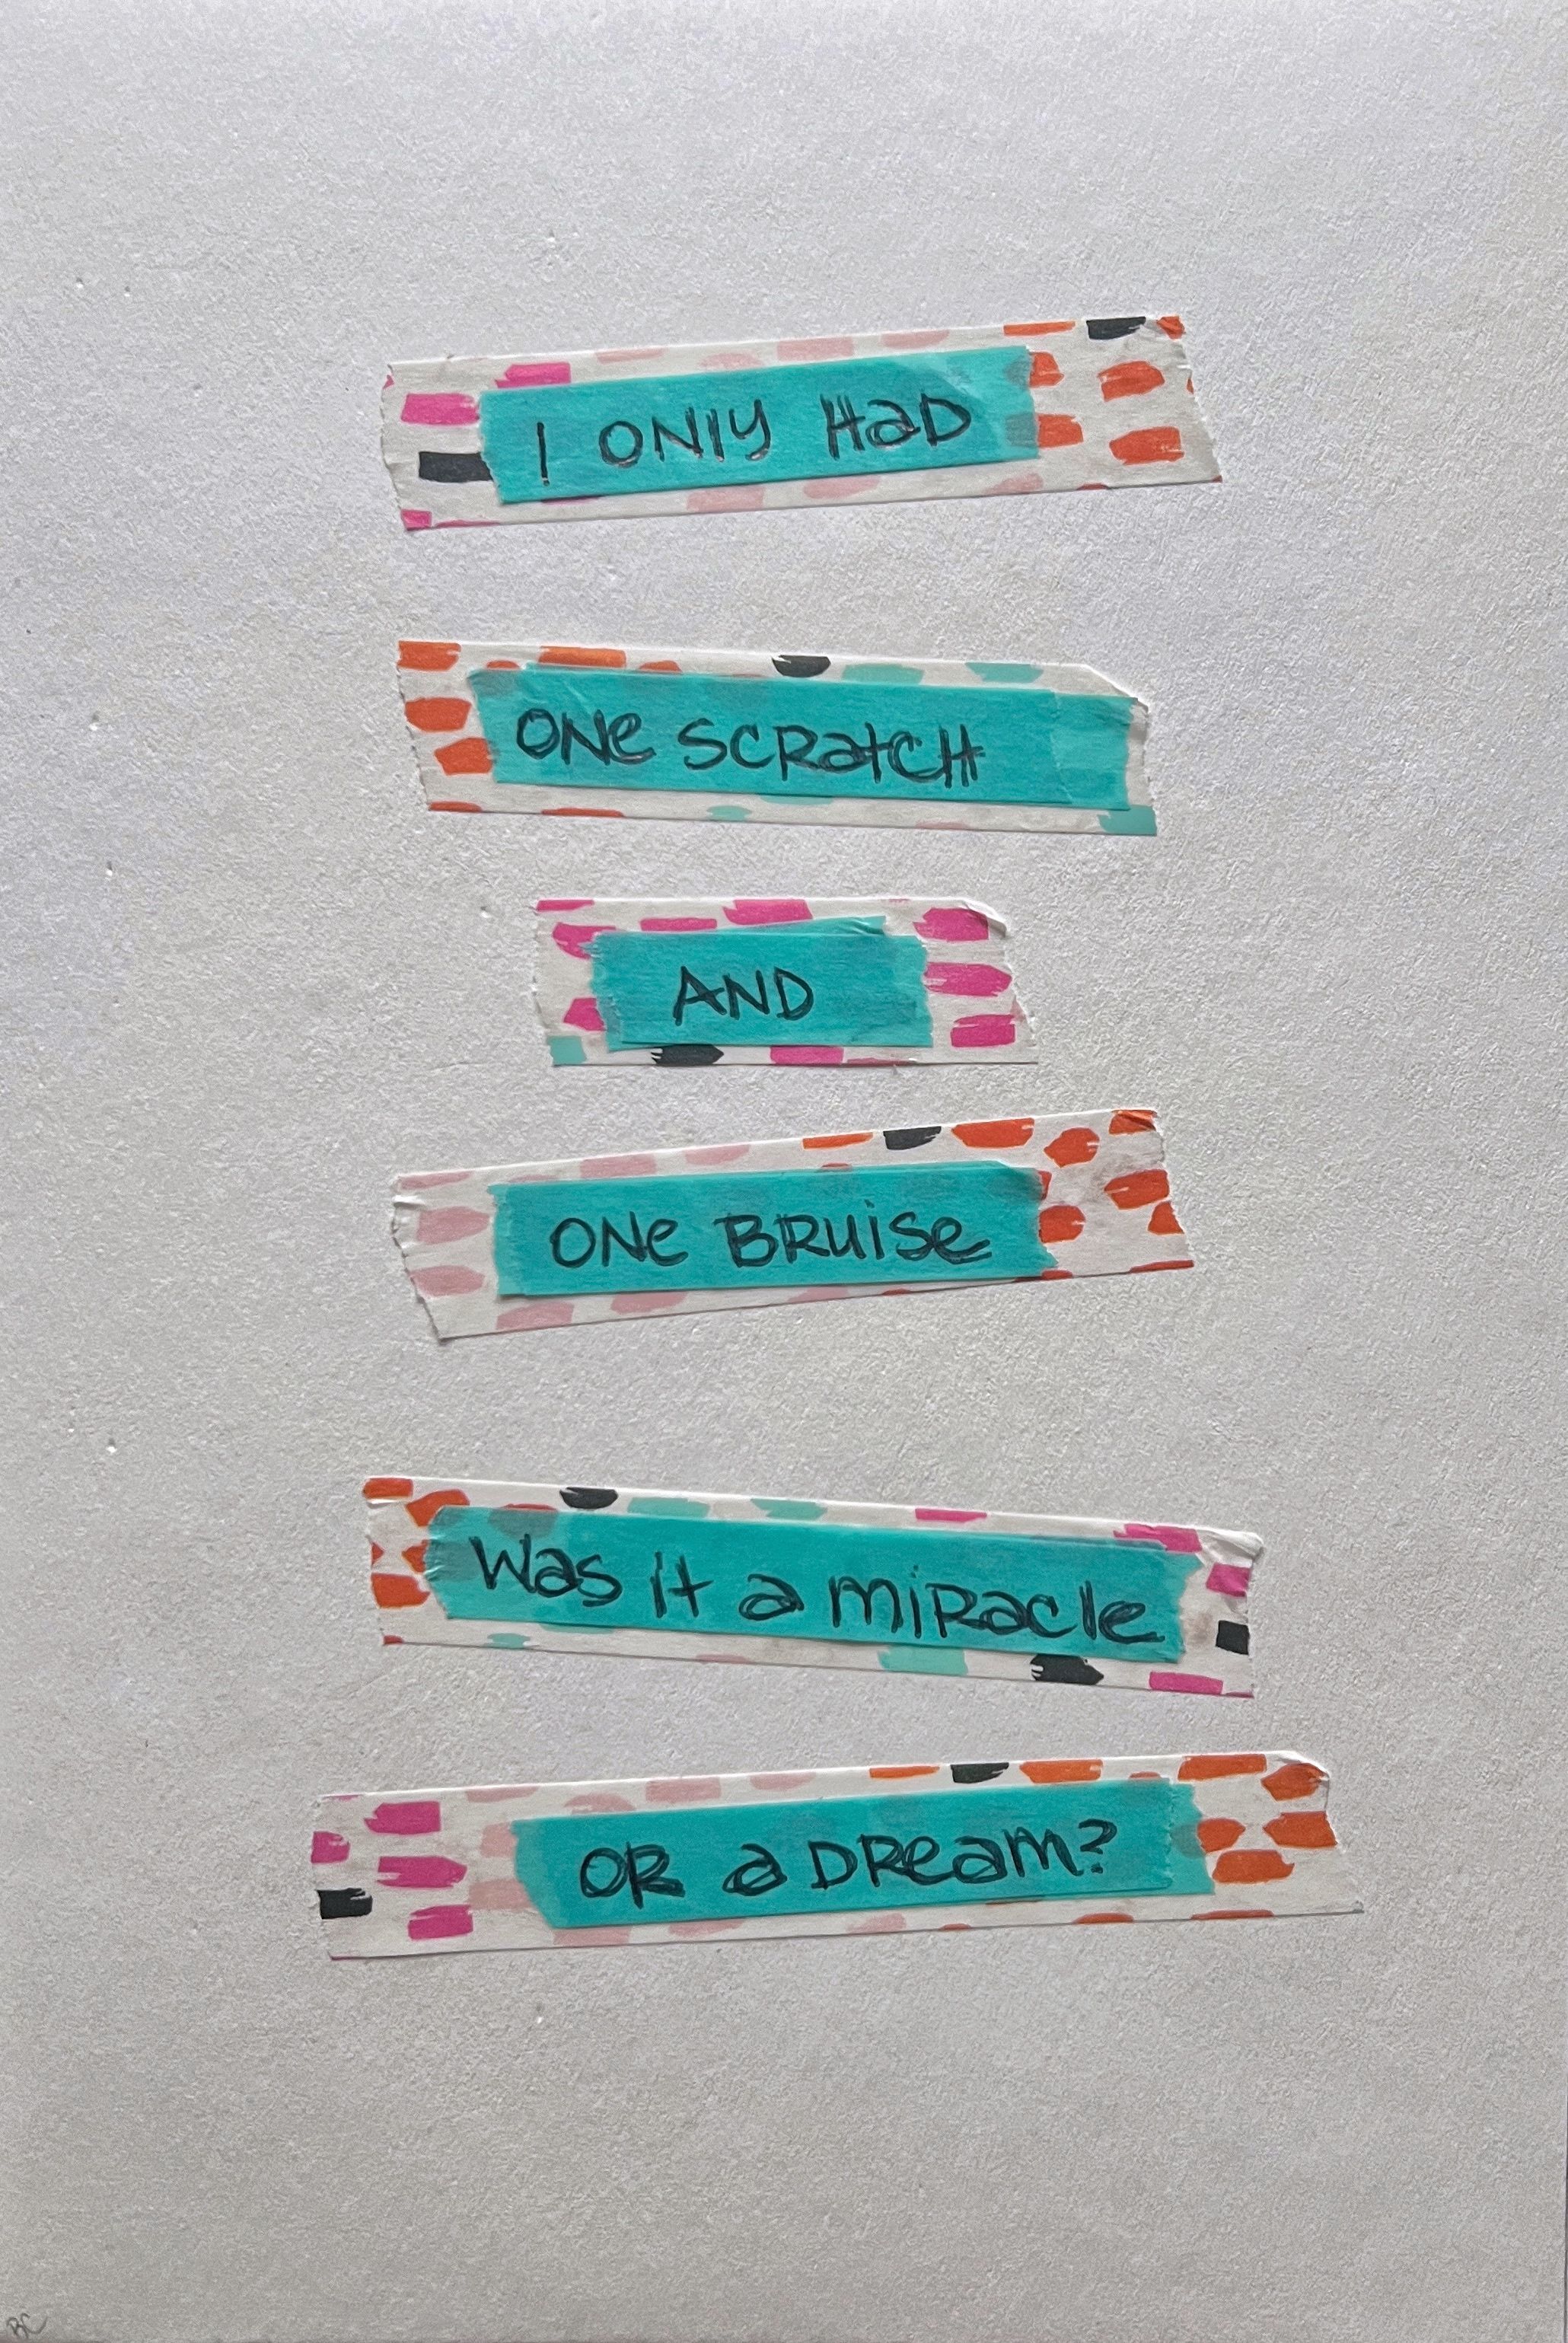 I ONLY HaD
ONe SCRatCH
AND
ONe BRuise
Was it a miRacle
OR a DReam?
BC